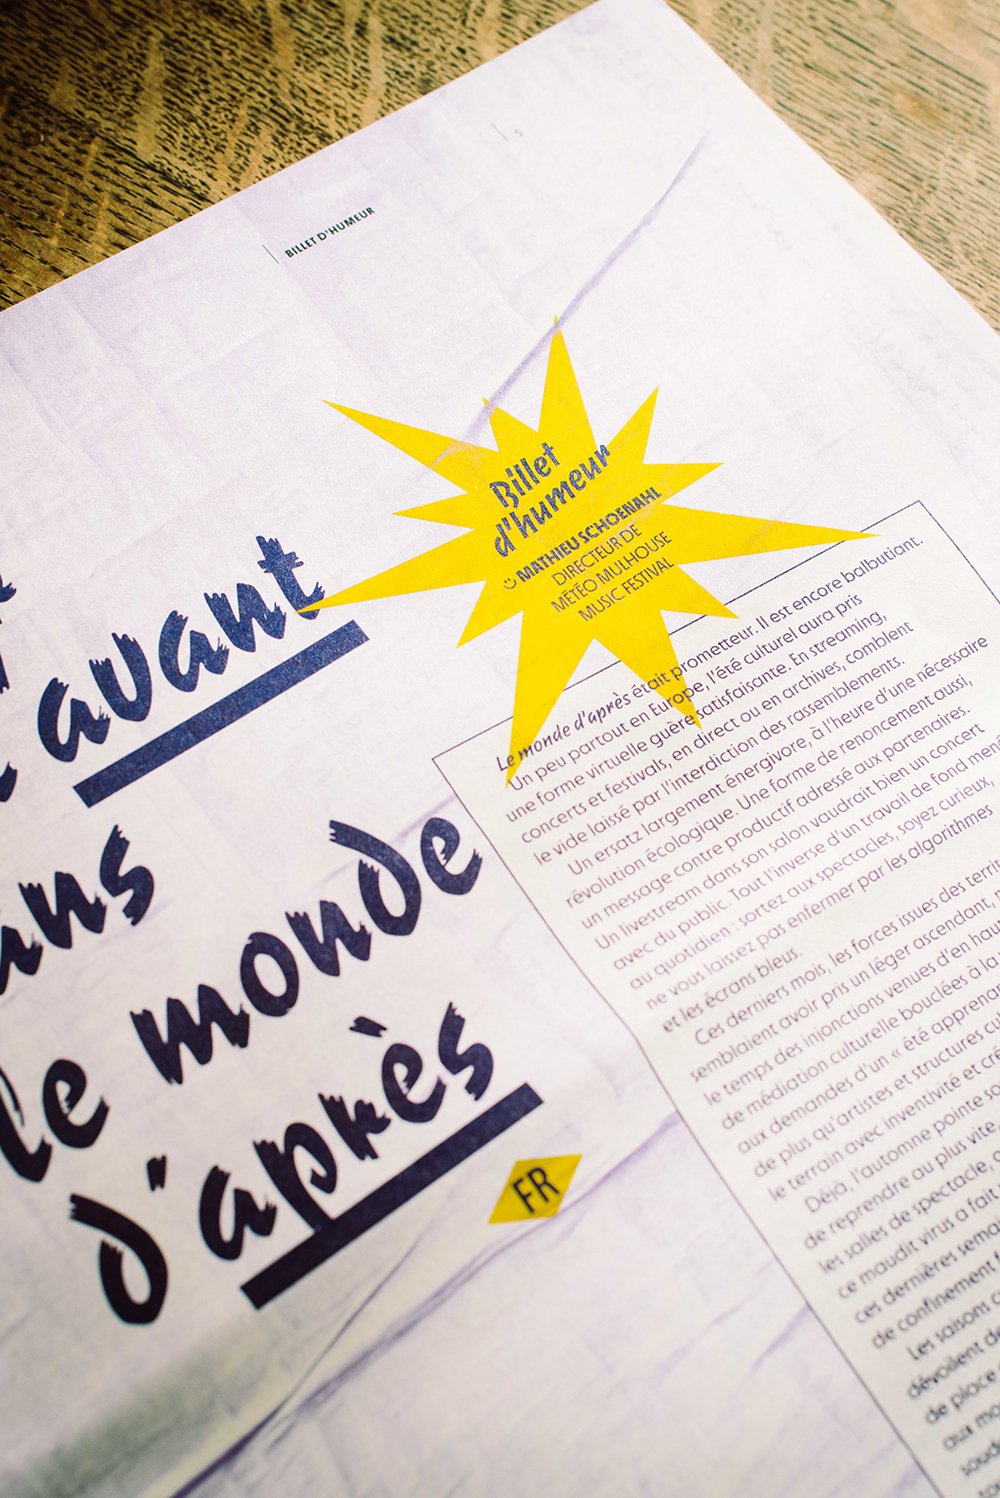 5
BILLET D'HUMEUR
Billet
d'humeur
MATHIEU SCHOENAHL
DIRECTEUR DE
MÉTÉO MULHOUSE
MUSIC FESTIVAL
avant
le monde
d'après
FR
Le monde d'après était prometteur. Il est encore balbutiant.
Un peu partout en Europe, l'été culturel aura pris
une forme virtuelle guère satisfaisante. En streaming,
concerts et festivals, en direct ou en archives, comblent
le vide laissé par l'interdiction des rassemblements.
Un ersatz largement énergivore, à l'heure d'une nécessaire
révolution écologique. Une forme de renoncement aussi,
un message contre productif adressé aux partenaires.
Un livestream dans son salon vaudrait bien un concert
avec du public. Tout l'inverse d'un travail de fond mené
au quotidien : sortez aux spectacles, soyez curieux,
ne vous laissez pas enfermer par les algorithmes
et les écrans bleus.
Ces derniers mois, les forces issues des
semblaient avoir pris un léger ascendant,
le temps des injonctions venues d'en
de médiation culturelle bouclées à la
aux demandes d'un « été
de plus qu'artistes et structures
le terrain avec inventivité et
Déjà, l'automne pointe
de reprendre au plus vite
les salles de spectacle,
ce maudit virus a fait
ces dernières
de confinement
Les saisons
dévoilent
de place
aux